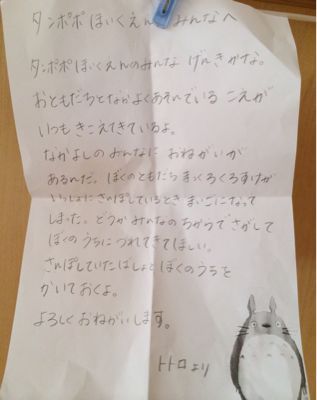 タンポポほいくえん みんなへ
タンポポほいくえんのみんな げんきかな。
おともだちとなかよくあそんでいる こえが
いつも きこえてきているよ。
なかよしのみんなに おねがいが
あるんだ。ぼくのともだち まっくろくろすけが
いっしょに さんぽしているとき まいごになって
しまった。どうか みんなのちからで さがして
ぼくの うちに つれてきてほしい。
さんぽしていたばしょと ぼくのうちを
かいておくよ。
よろしく おねがいします。
トトロより